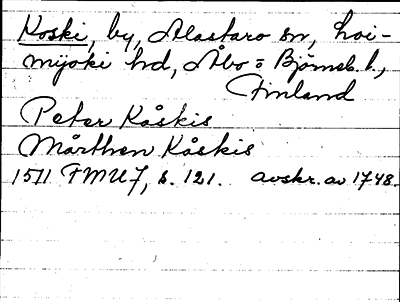 Koski, by, Alastaro sn, Loi-
mijoki hd, Åbo o Björneb. l.,
Finland
Peter Kåskis
Mårthen Kåskis
1511 FMU 7, s. 121. avskr. av 1748.